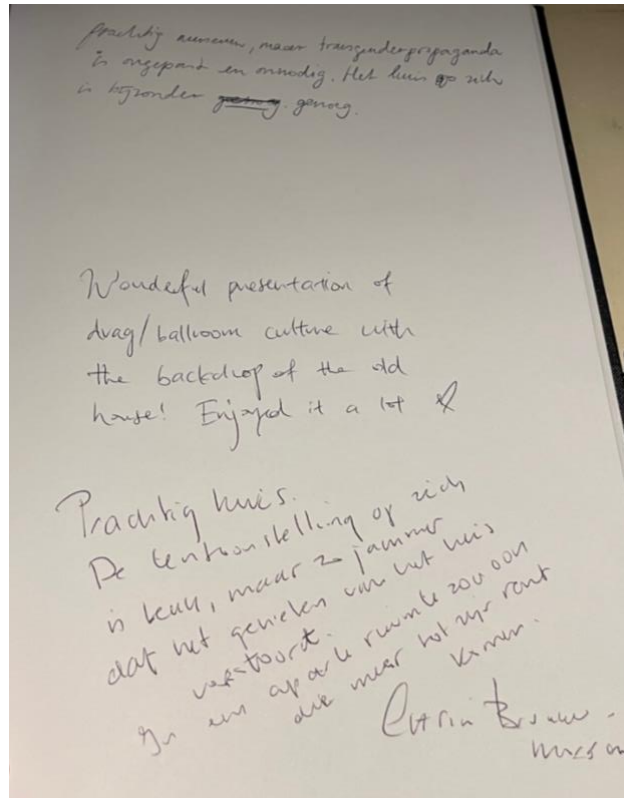 Prachtig museum, maar transgenderpropaganda
is ongepast en onnodig. Het huis op zich
is bijzonder genoeg.
Wonderful presentation of
drag/ballroom culture with
the backdrop of the old
house! Enjoyed it a lot
Prachtig huis.
De tentoonstelling op zich
is leuk, maar zo jammer
dat het genieten van het huis
verstoort.
In een aparte ruimte zou oon
die meer tot zijn recht
komen.